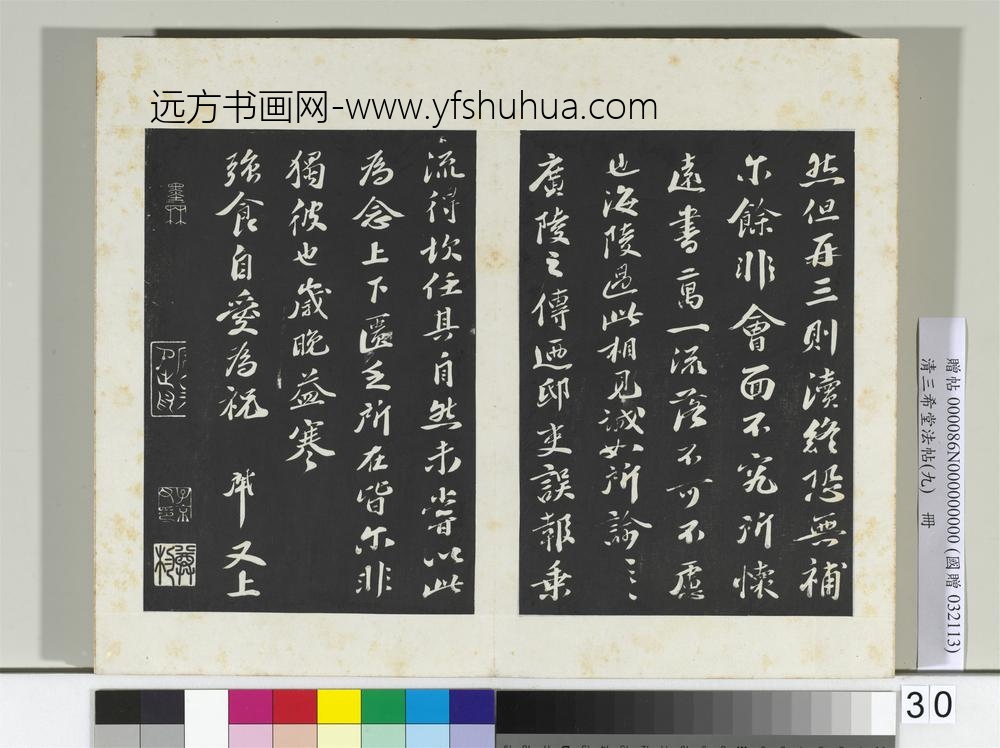 远方书画网-www.yfshuhua.com
然但再三則瀆終恐無補
尓餘非會面不究所懷
遠書萬一流落不可不慮
也海陵過此相見誠如所諭〻
廣陵之傳迺邸吏誤報乗
流得坎任其自然未嘗以此
為念上下匱乏所在皆尓非
獨彼也歲晚益寒
強食自愛為祝 又上
墨林
贈帖 000086N000000000 (國贈 032113)
清三希堂法帖(九) 冊
30